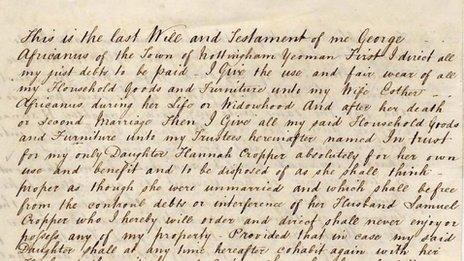 This is the last Will and Testament of me George
Africanus of the Town of Nottingham Yeoman First I direct all
my just debts to be paid - I Give the use and fair wear of all
my Household Goods and Furniture unto my Wife Esther
Africanus during her Life or Widowhood And after her death
or Second Marriage Then I Give all my said Household Goods
and Furniture unto my Trustees hereinafter named In trust
for my only Daughter Hannah Cropper absolutely for her own
use and benefit and to be disposed of as she shall think
proper as though she were unmarried and which shall be free
from the controul debts or interference of her Husband Samuel
Cropper who I hereby will order and direct shall never enjoy or
possess any of my property - Provided that in case my said
Daughter shall at any time hereafter cohabit again with her